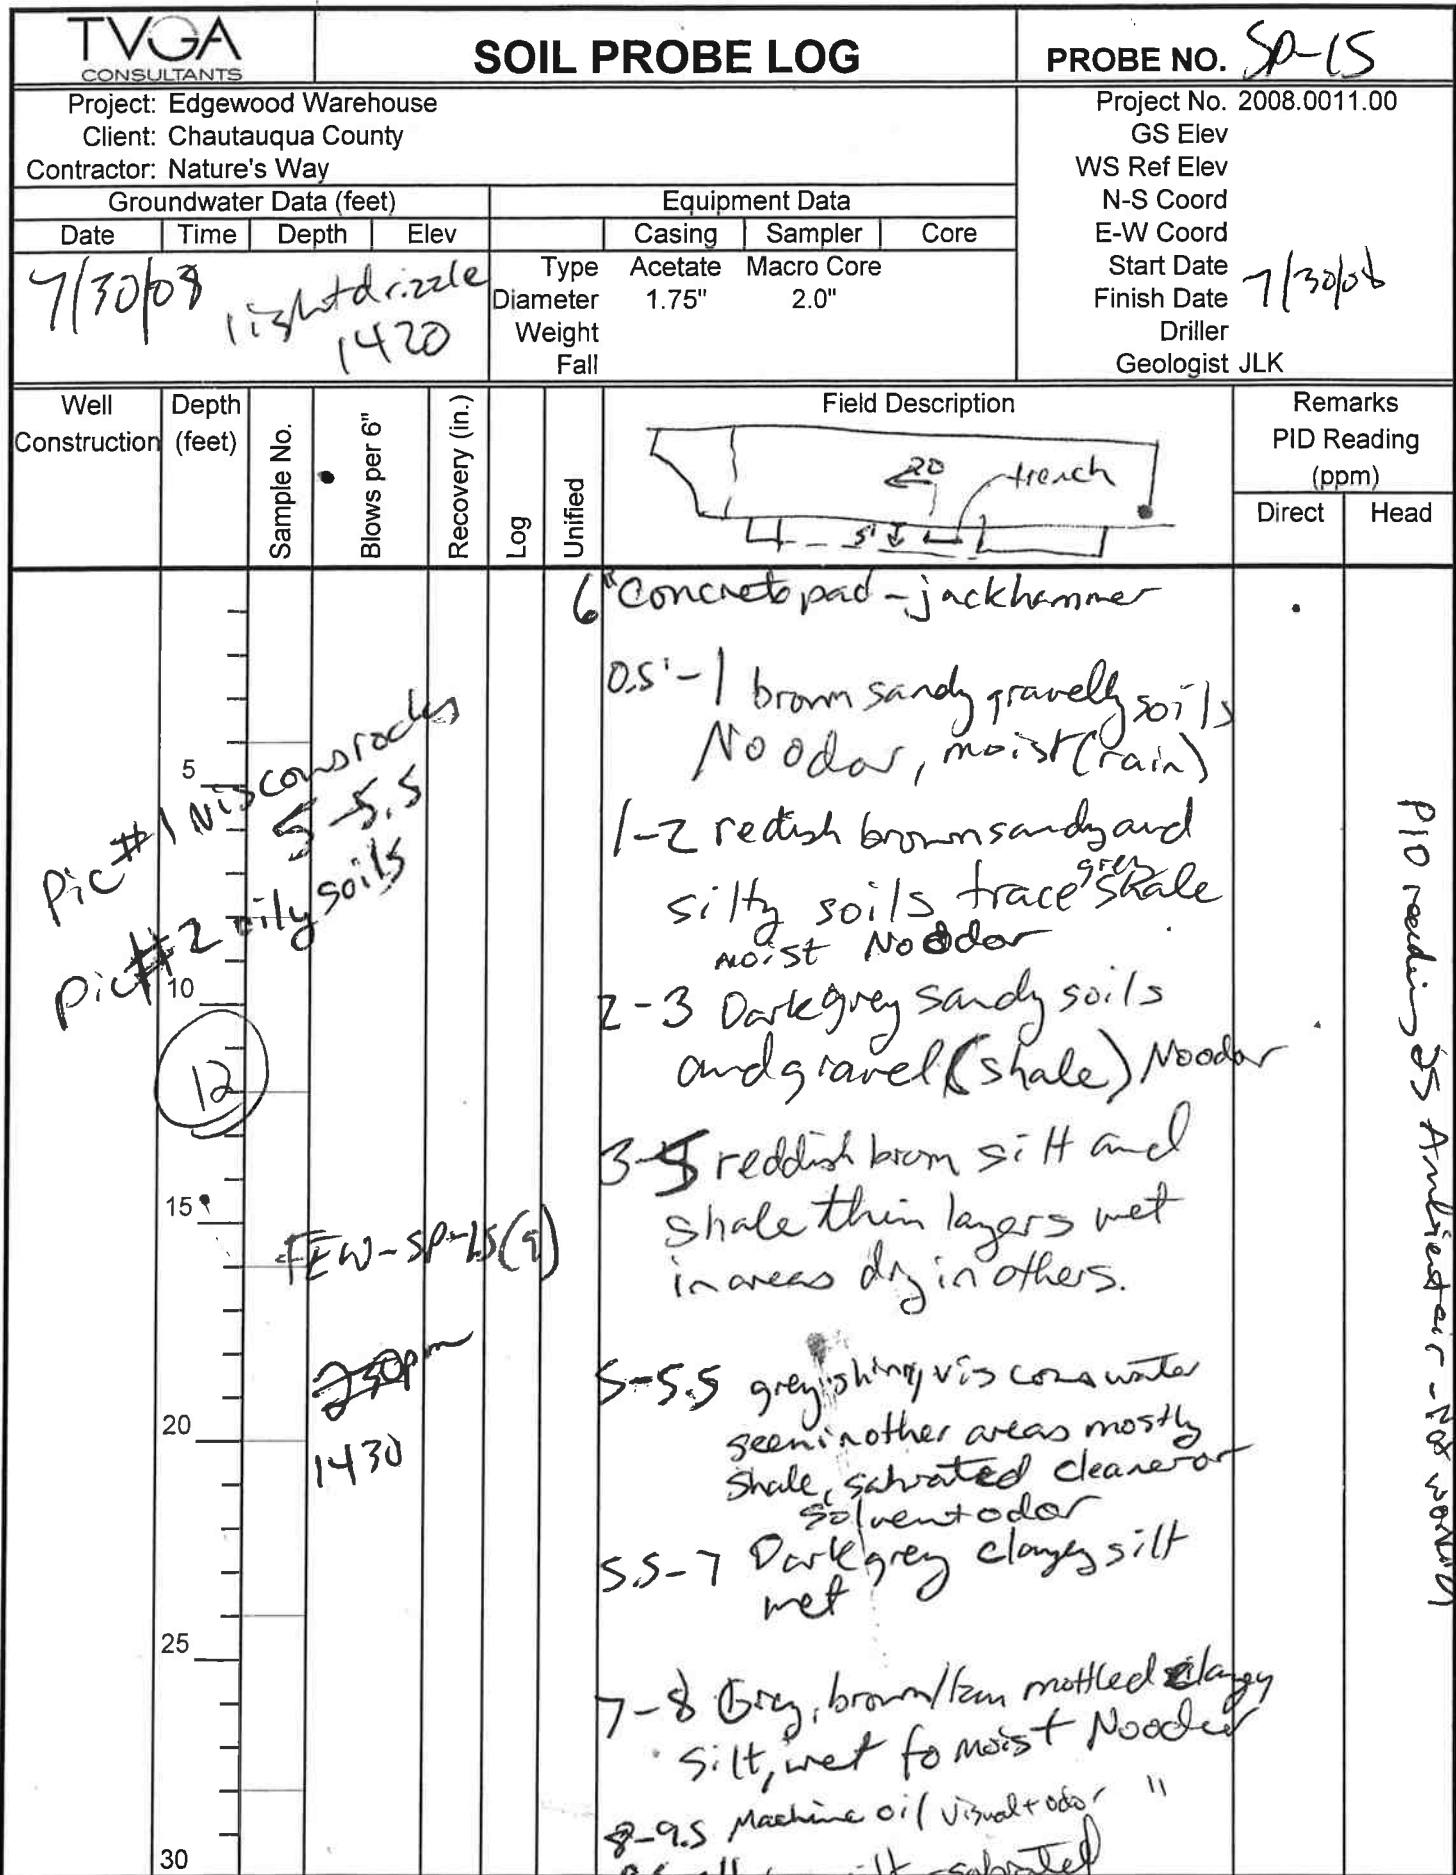 TVGA
CONSULTANTS
SOIL PROBE LOG
PROBE NO. SP-15
Project: Edgewood Warehouse
Client: Chautauqua County
Contractor: Nature's Way
Project No. 2008.0011.00
GS Elev
WS Ref Elev
N-S Coord
E-W Coord
Start Date 7/30/08
Finish Date
Driller
Geologist JLK
Groundwater Data (feet)
Equipment Data
Date Time Depth Elev
Casing Sampler Core
7/30/08 light drizzle
1420
Type Acetate Macro Core
Diameter 1.75" 2.0"
Weight
Fall
Well Construction
Depth (feet)
Sample No.
Blows per 6"
Recovery (in.)
Log
Unified
Field Description
20
trench
5'
Remarks
PID Reading
(ppm)
Direct Head
6" Concrete pad - jackhammer
0.5'-1 brown sandy gravelly soils
No odor, moist (rain)
1-2 redish brown sandy and
silty soils trace grey shale
moist No odor
2-3 Dark grey sandy soils
and gravel (shale) No odor
3-5 reddish brown silt and
shale thin layers wet
in areas dry in others.
5-5.5 grey, shiny, viscous water
seen in other areas mostly
shale, saturated cleaner or
solvent odor
5.5-7 Dark grey clayey silt
wet
7-8 Grey, brown/tan mottled clayey
silt, wet to moist No odor
8-9.5 Machine oil visual + odor "
saturated
Pic #1 viscous rocks
5-5.5
Pic #2 oily soils
5
10
12
15
FEW-SP-15(9)
230pm
1430
20
25
30
PID reading 35 Ambient air - Not working